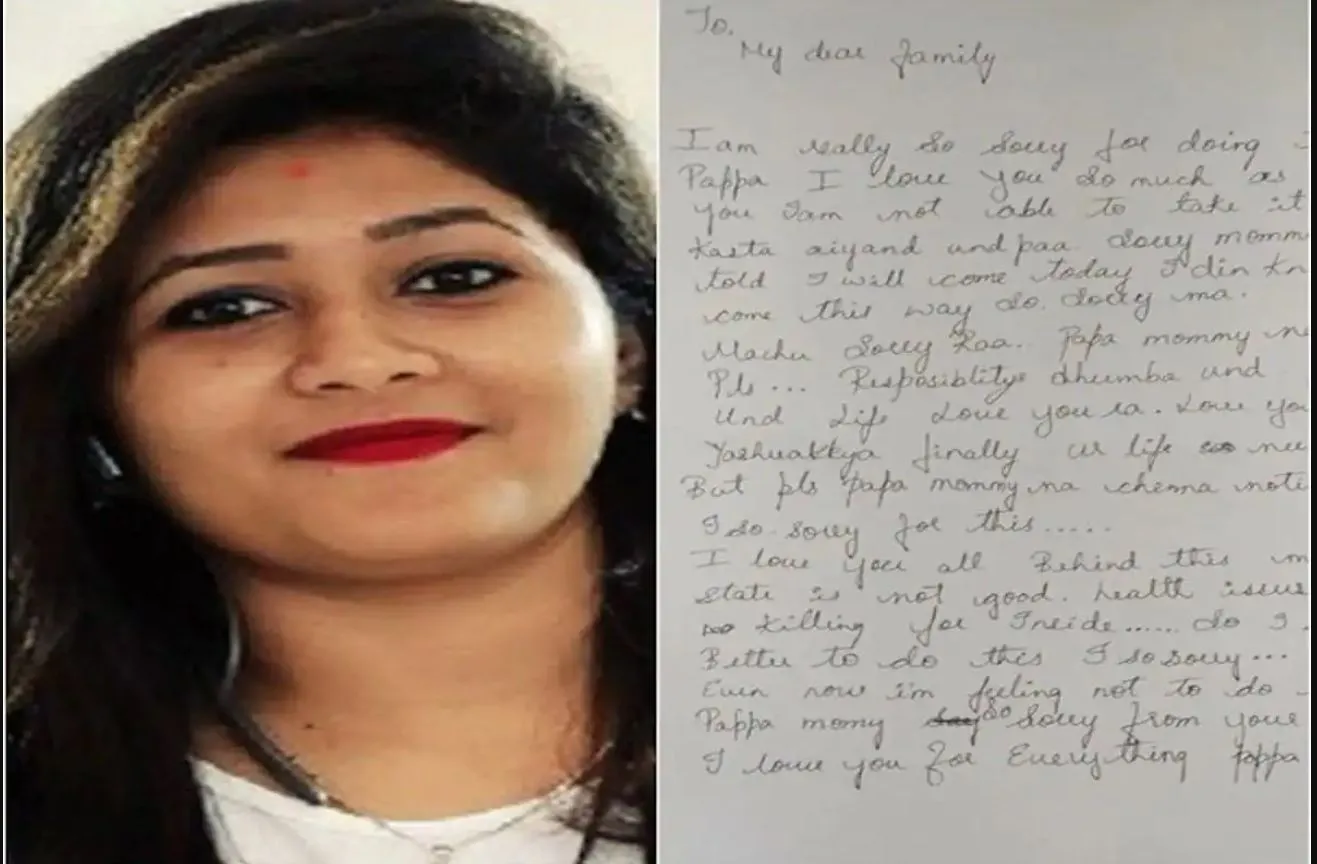 To,
My dear family
I am really so sorry for doing
Pappa I love you so much as
you Iam not able to take it
Kasta aiyand und paa. Sorry momm
told I will come today I din kn
come this way so. Sorry ma.
Machu Sorry Raa. Papa mommy n
Pls ... Resposiblitye dhumba und
Und Life Love you ra. Love yo
Yashuakkya finally ur life nee
But pls papa mommy na chenna noti
I so sorry for this.....
I love you all Behind this m
state is not good. health issue
killing for Inside...... So I
Better to do this I so sorry...
Even now i'm feeling not to do
Pappa momy so Sorry from your
I love you for Everything pappa